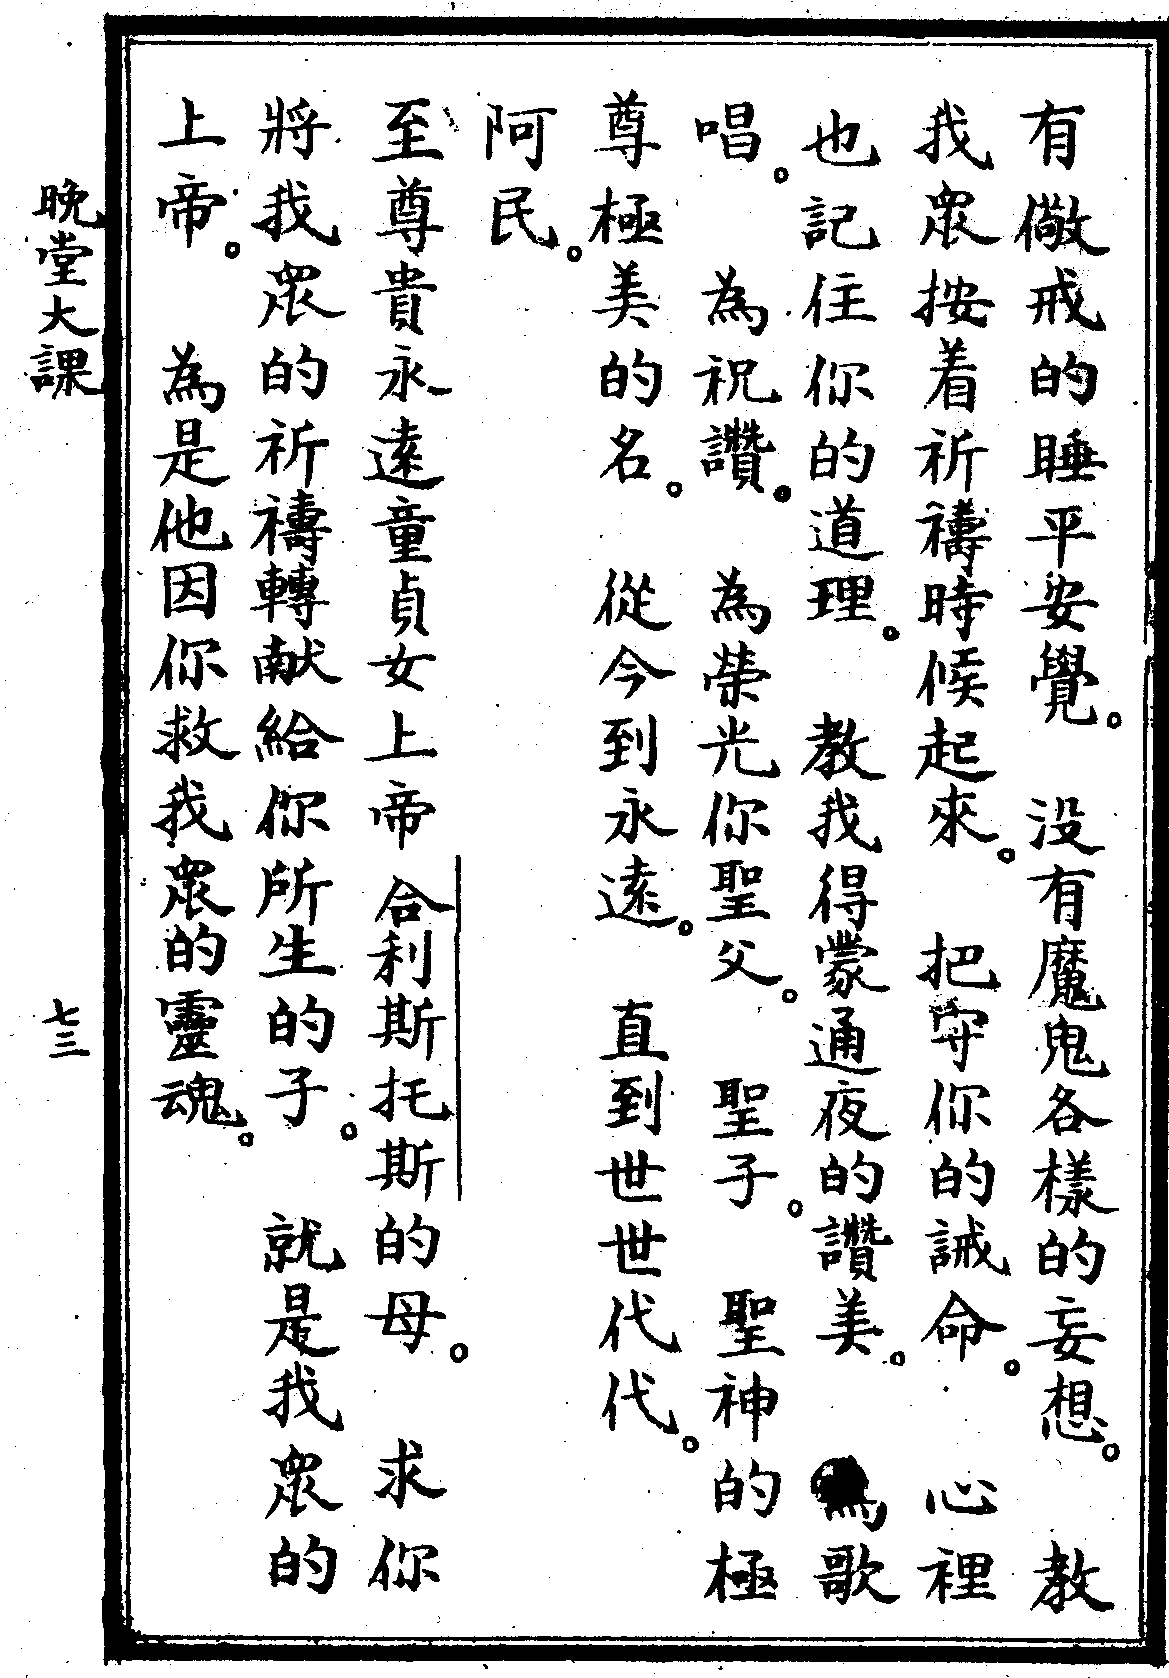 有儆戒的睡平安覺。　没有魔鬼各樣的妄想。　教
我衆按着祈禱時候起來。　把守你的誡命。　心裡
也記住你的道理。　教我得蒙通夜的讚美。　為歌
唱。　為祝讚。　為榮光你聖父。　聖子。　聖神的極
尊極美的名。　從今到永遠。　直到世世代代。
阿民。
至尊貴永遠童貞女上帝合利斯托斯的母。　求你
將我衆的祈禱轉献給你所生的子。　就是我衆的
上帝。　為是他因你救我衆的靈魂。
晚堂大課
七三